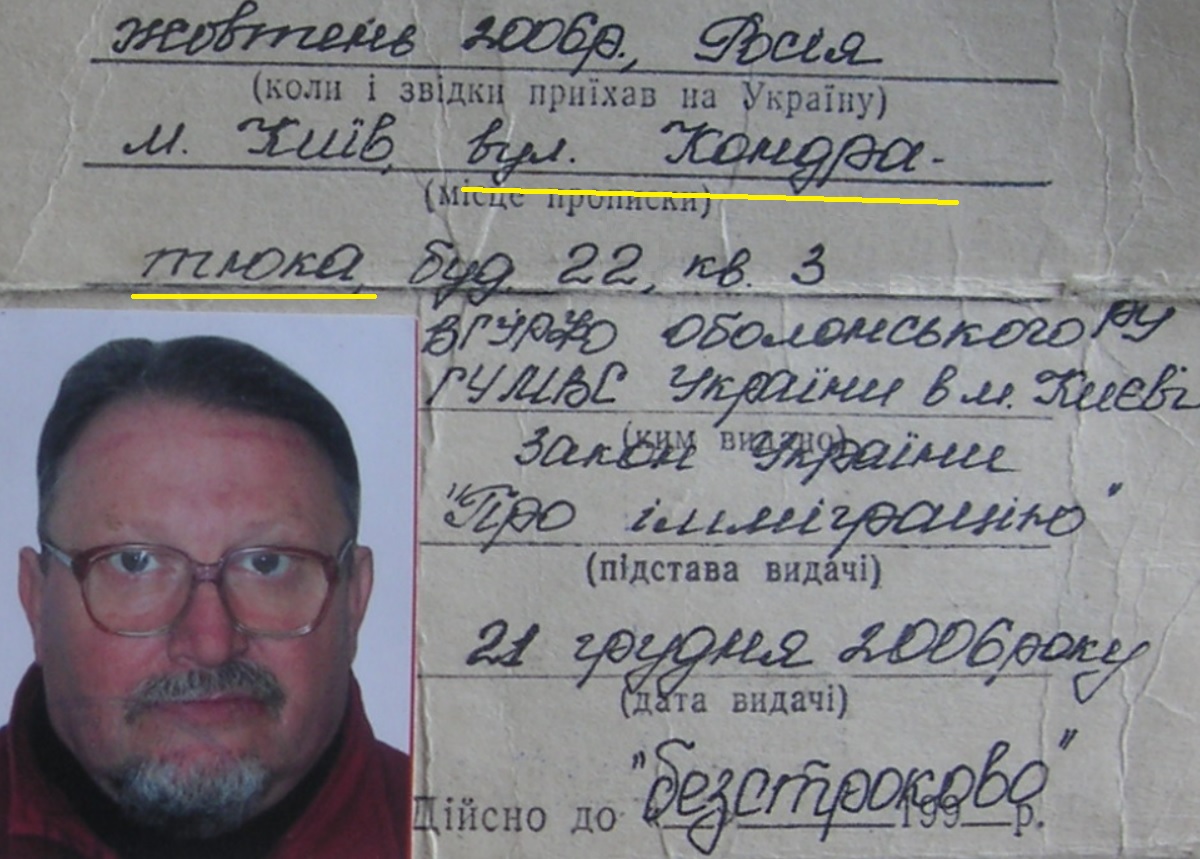 жовтень 2006р., Росія
(коли і звідки приїхав на Україну)
м. Київ, вул. Кондра-
(місце прописки)
тюка, буд. 22, кв. 3
ВГІРФО Оболонського РУ
ГУМВС України в м. Києві
(ким видано)
Закон України
"Про імміграцію"
(підстава видачі)
21 грудня 2006 року
(дата видачі)
"безстроково"
Дійсно до 199 р.